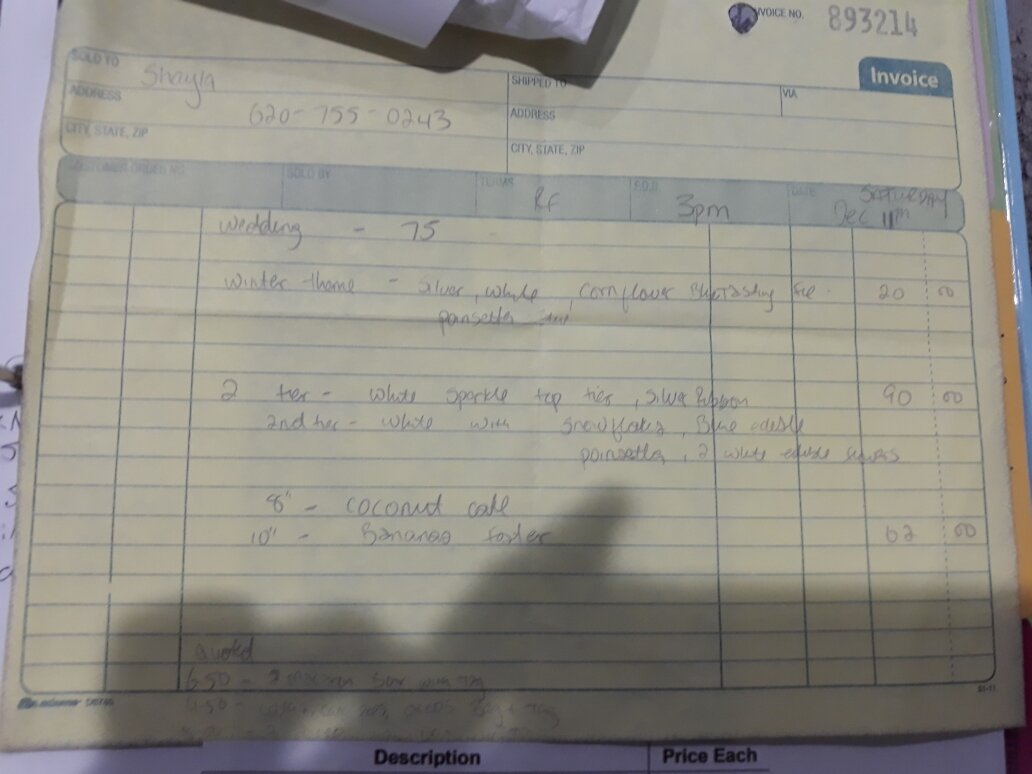 INVOICE NO. 893214
Invoice
SOLD TO Shayla
SHIPPED TO
VIA
ADDRESS
ADDRESS
620-755-0243
CITY, STATE, ZIP
CITY, STATE, ZIP
CUSTOMER ORDER NO.
SOLD BY
TERMS
F.O.B.
DATE
SATURDAY
RF
3pm
Dec 11th
wedding - 75
winter theme - Silver, white, cornflower Blue Tasting fee 20 00
poinsetta
2 tier - white sparkle top tier, silver Ribbon 90 00
2nd tier - white with snowflakes, Blue edible
poinsetta, 2 white edible
8" - coconut cake
10" - Bananas foster 62 00
Quoted
6.50 -
adams
51-11
Description
Price Each